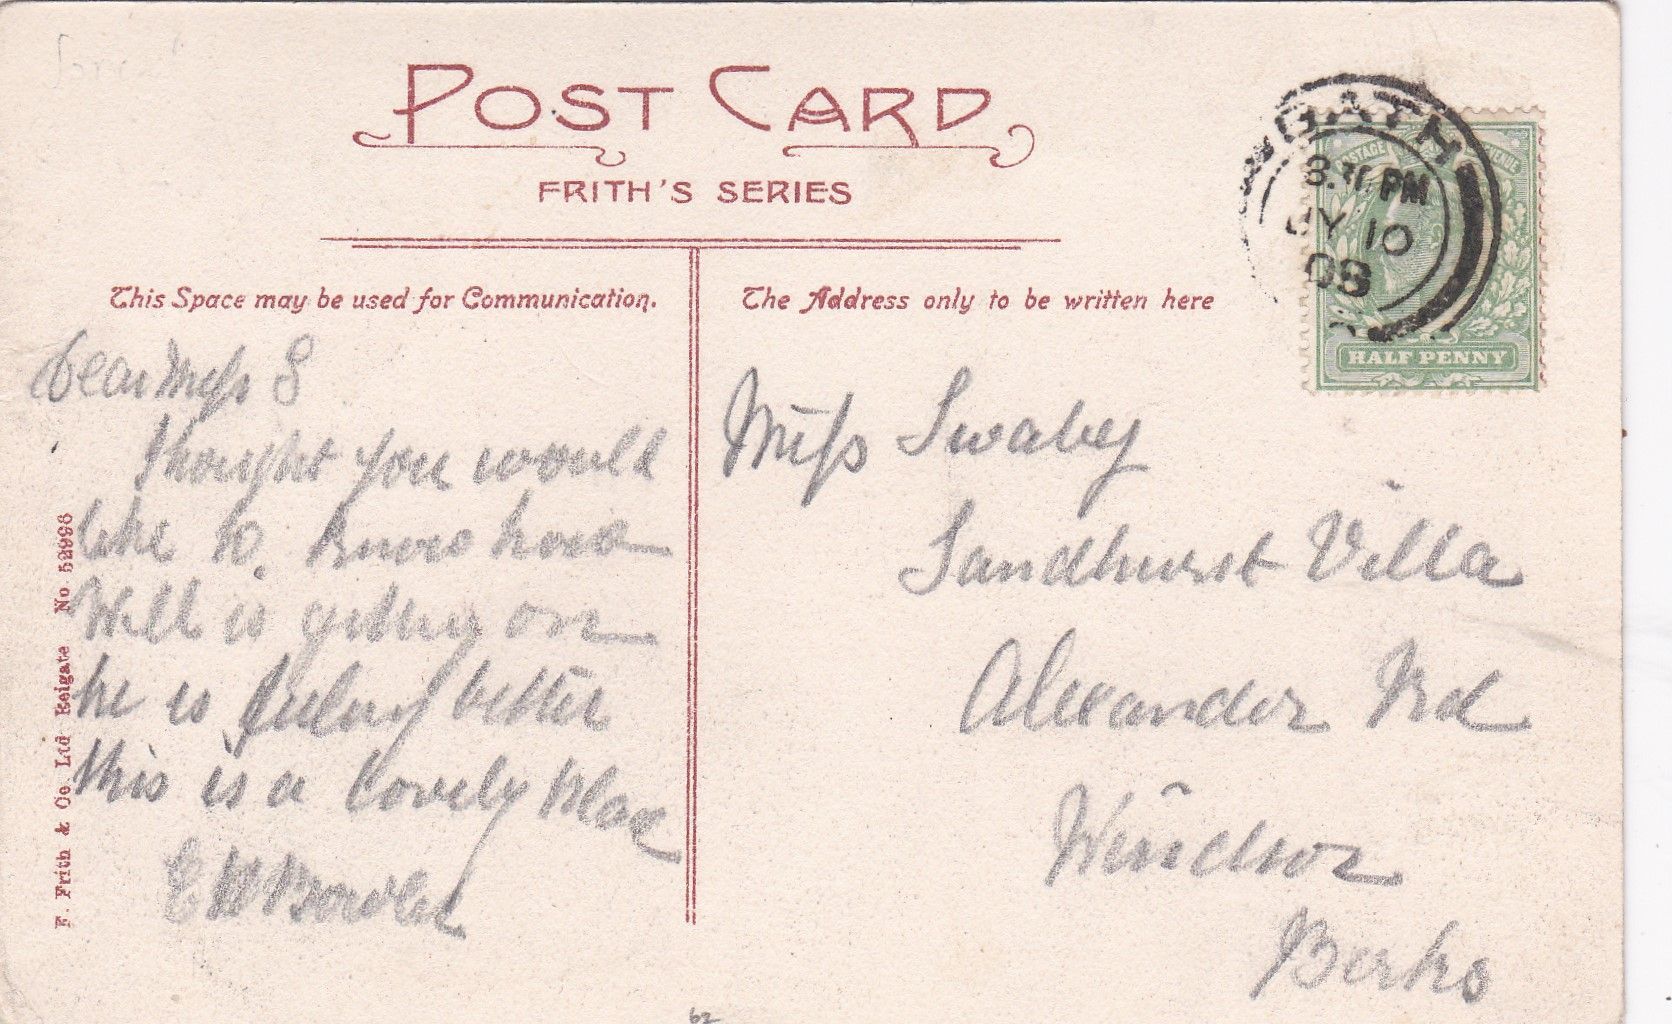 POST CARD
FRITH'S SERIES
This Space may be used for Communication.
The Address only to be written here
GATH
8.30 PM
JY 10
08
POSTAGE
HALF PENNY
Dear Miss S
thought you would
like to know how
Will is getting on
he is feeling better
this is a lovely place
E W Bowler
Miss Swabey
Sandhurst Villa
Alexander Rd
Windsor
Berks
F. Frith & Co. Ltd Reigate No 52996
62